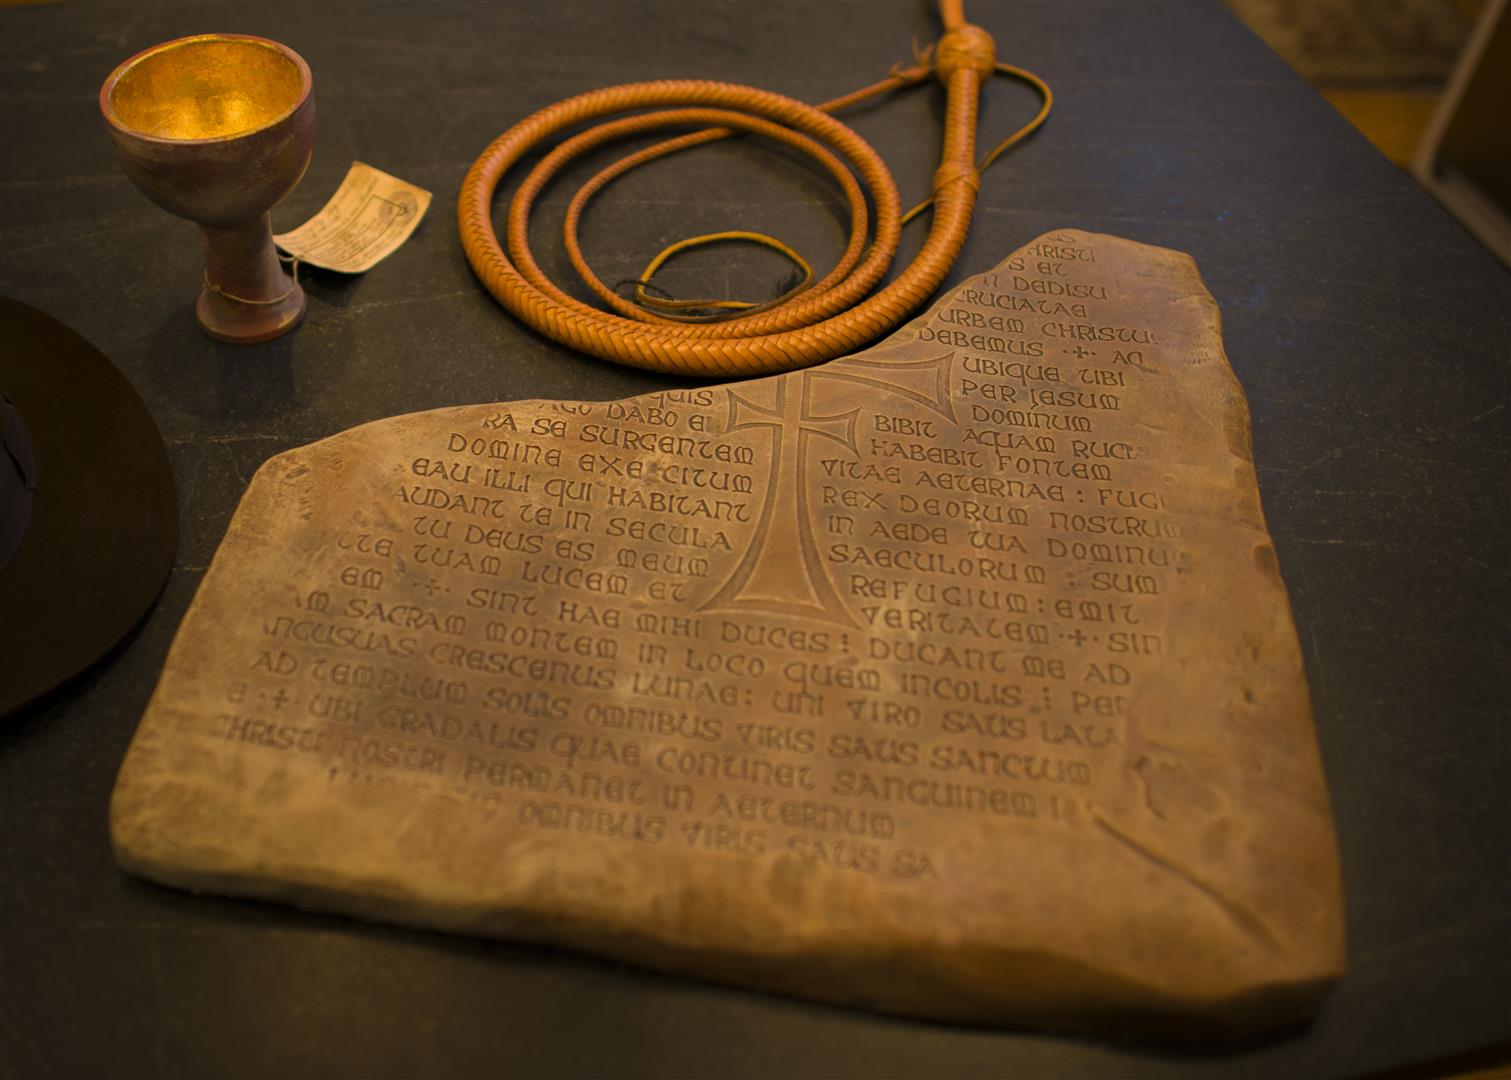 RISTI
S ET
N DEDISU
CRUCIATAE
URBEM CHRISTU
DEBEMUS ·+· AD
UBIQUE UBI
PER JESUM
DOMINUM
QUIS BIBIT AQUAM RUC
AGO DABO EI HABEBIT FONTEM
RA SE SURGENTEM VITAE AETERNAE : FUGI
DOMINE EXERCITUM REX DEORUM NOSTRUM
EAU ILLI QUI HABITANT IN AEDE TUA DOMINUS
AUDANT TE IN SECULA SAECULORUM : SUM
TU DEUS ES MEUM REFUGIUM : EMIT
TTE TUAM LUCEM ET VERITATEM ·+· SIN
EM ·+· SINT HAE MIHI DUCES : DUCANT ME AD
AM SACRAM MONTEM IN LOCO QUEM INCOLIS : PER
ANGUSUAS CRESCENUS LUNAE : UNI VIRO SAUS LATA
AD TEMPLUM SOLIS OMNIBUS VIRIS SAUS SANCTUM
E ·+· UBI GRADALIS QUAE CONTINET SANGUINEM I
CHRISTI NOSTRI PERMANET IN AETERNUM
OMNIBUS VIRIS SAUS SA